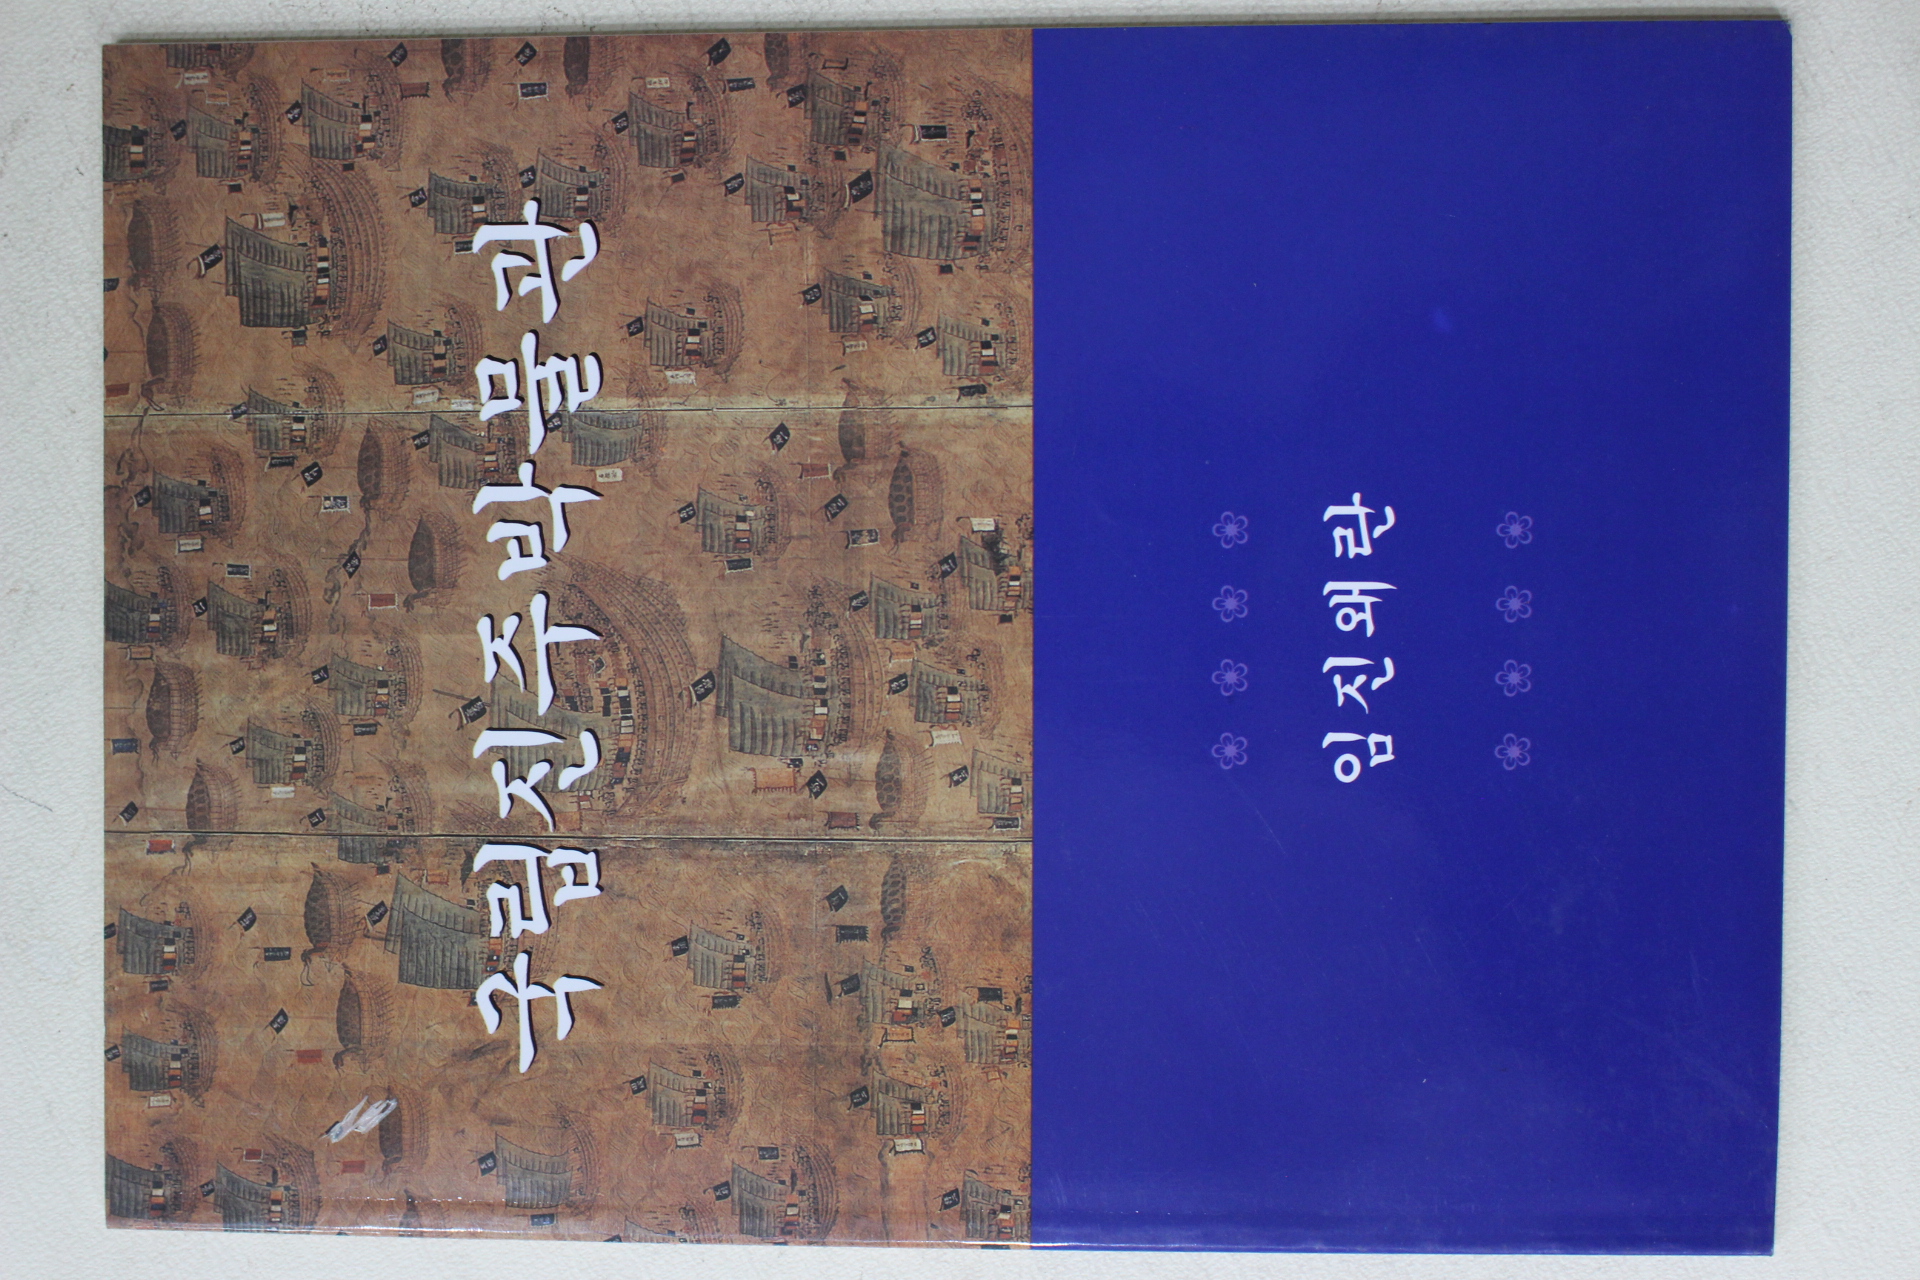 국립진주박물관
임진왜란